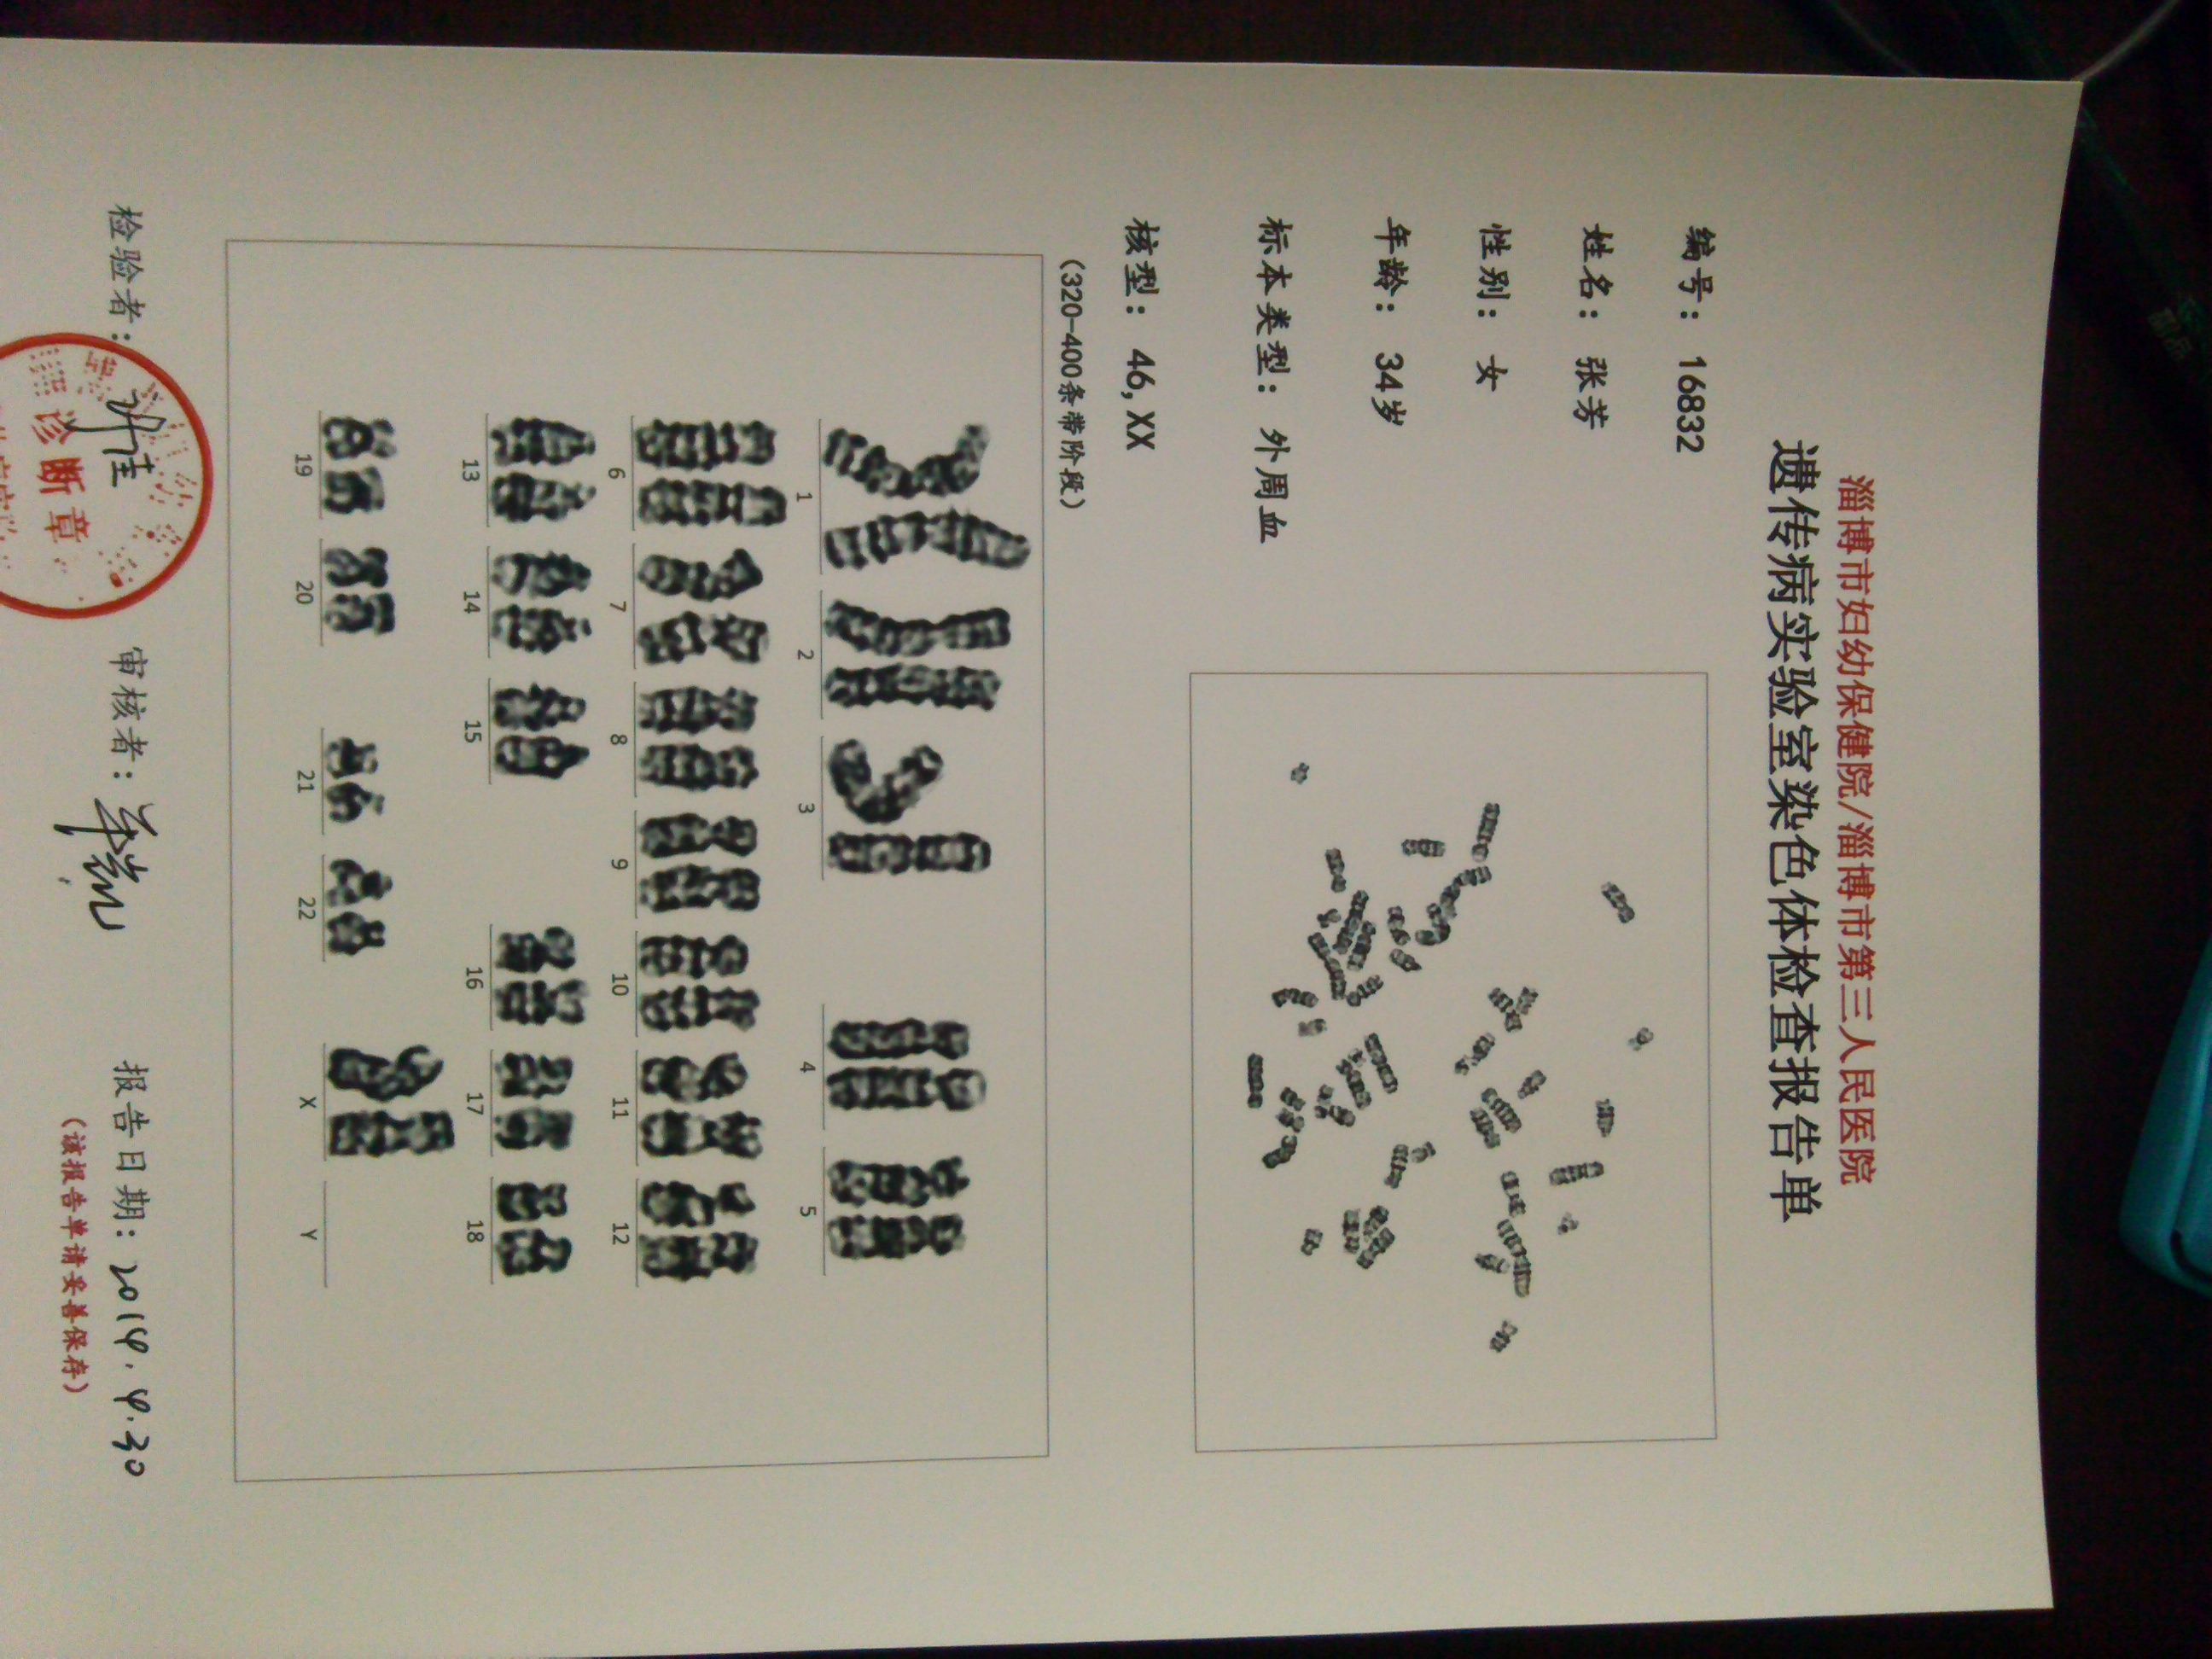 淄博市妇幼保健院/淄博市第三人民医院
遗传病实验室染色体检查报告单
编号： 16832
姓名： 张芳
性别： 女
年龄： 34岁
标本类型： 外周血
核型： 46,XX
(320-400条带阶段)
1 2 3 4 5
6 7 8 9 10 11 12
13 14 15 16 17 18
19 20 21 22 X Y
检验者： 审核者： 报告日期： 2014.4.30
诊断章
(该报告单请妥善保存)